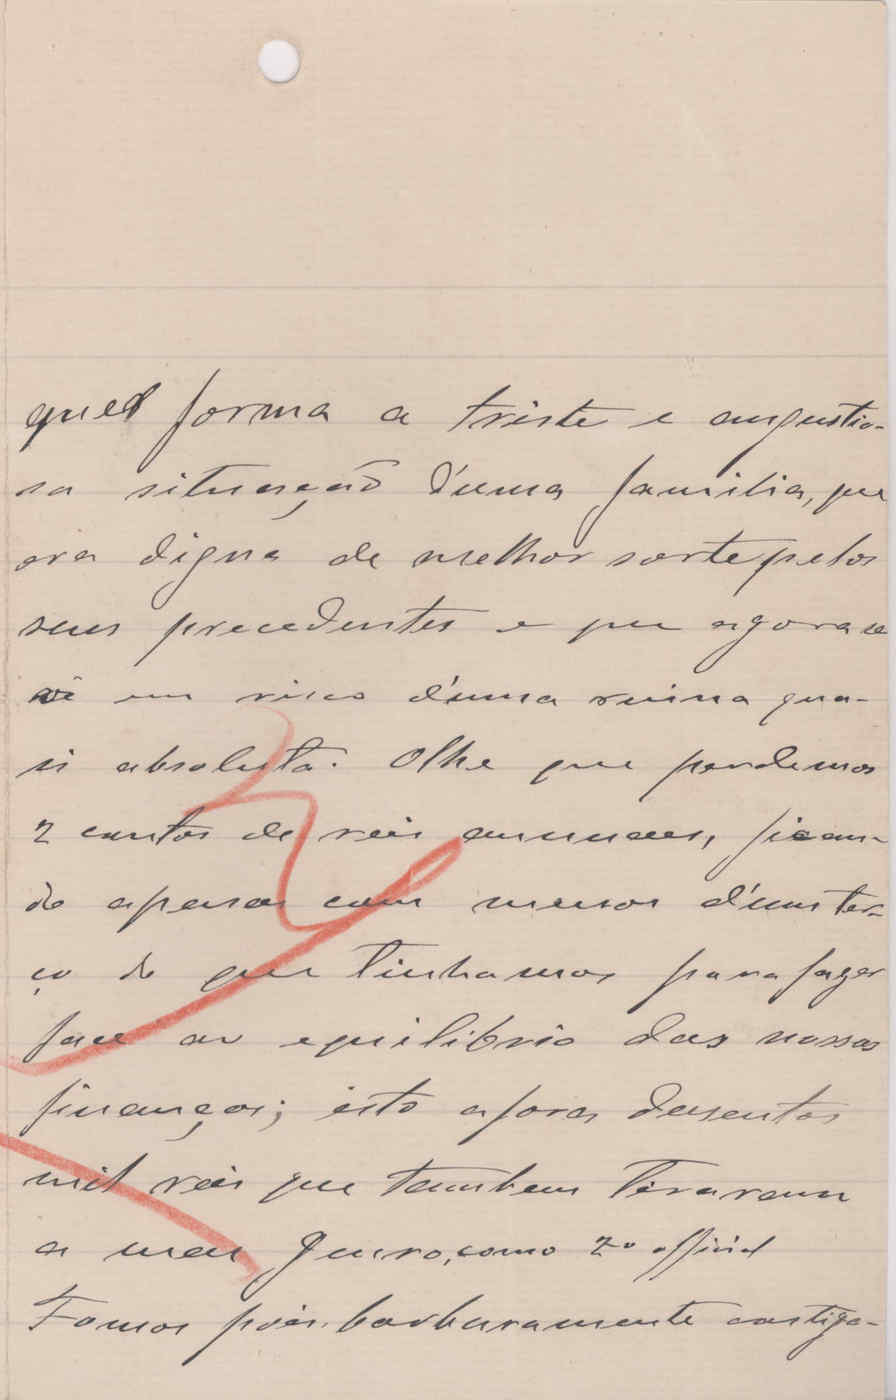 quel forma a triste e angustio-
sa situação d'uma familia, que
era digna de melhor sorte pelos
seus precedentes e que agora se
vê em risco d'uma ruina qua-
si absoluta. Olhe que perdemos
2 contos de reis annuaes, fican-
do apenas com menos d'um ter-
ço do que tinhamos para fazer
face ao equilibrio das nossas
finanças; isto afora dusentos
mil reis que tambem tiraram
a meu Genro, como 2º official
Fomos pois barbaramente castiga-